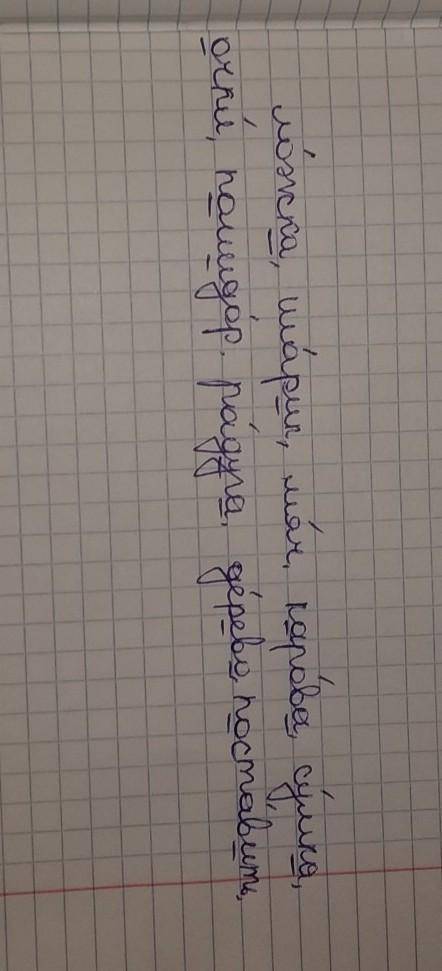 ло́жка, ша́рик, мя́ч, каро́ва, су́мка,
очки́, помидо́р, ра́дуга, де́рево, поста́вить,